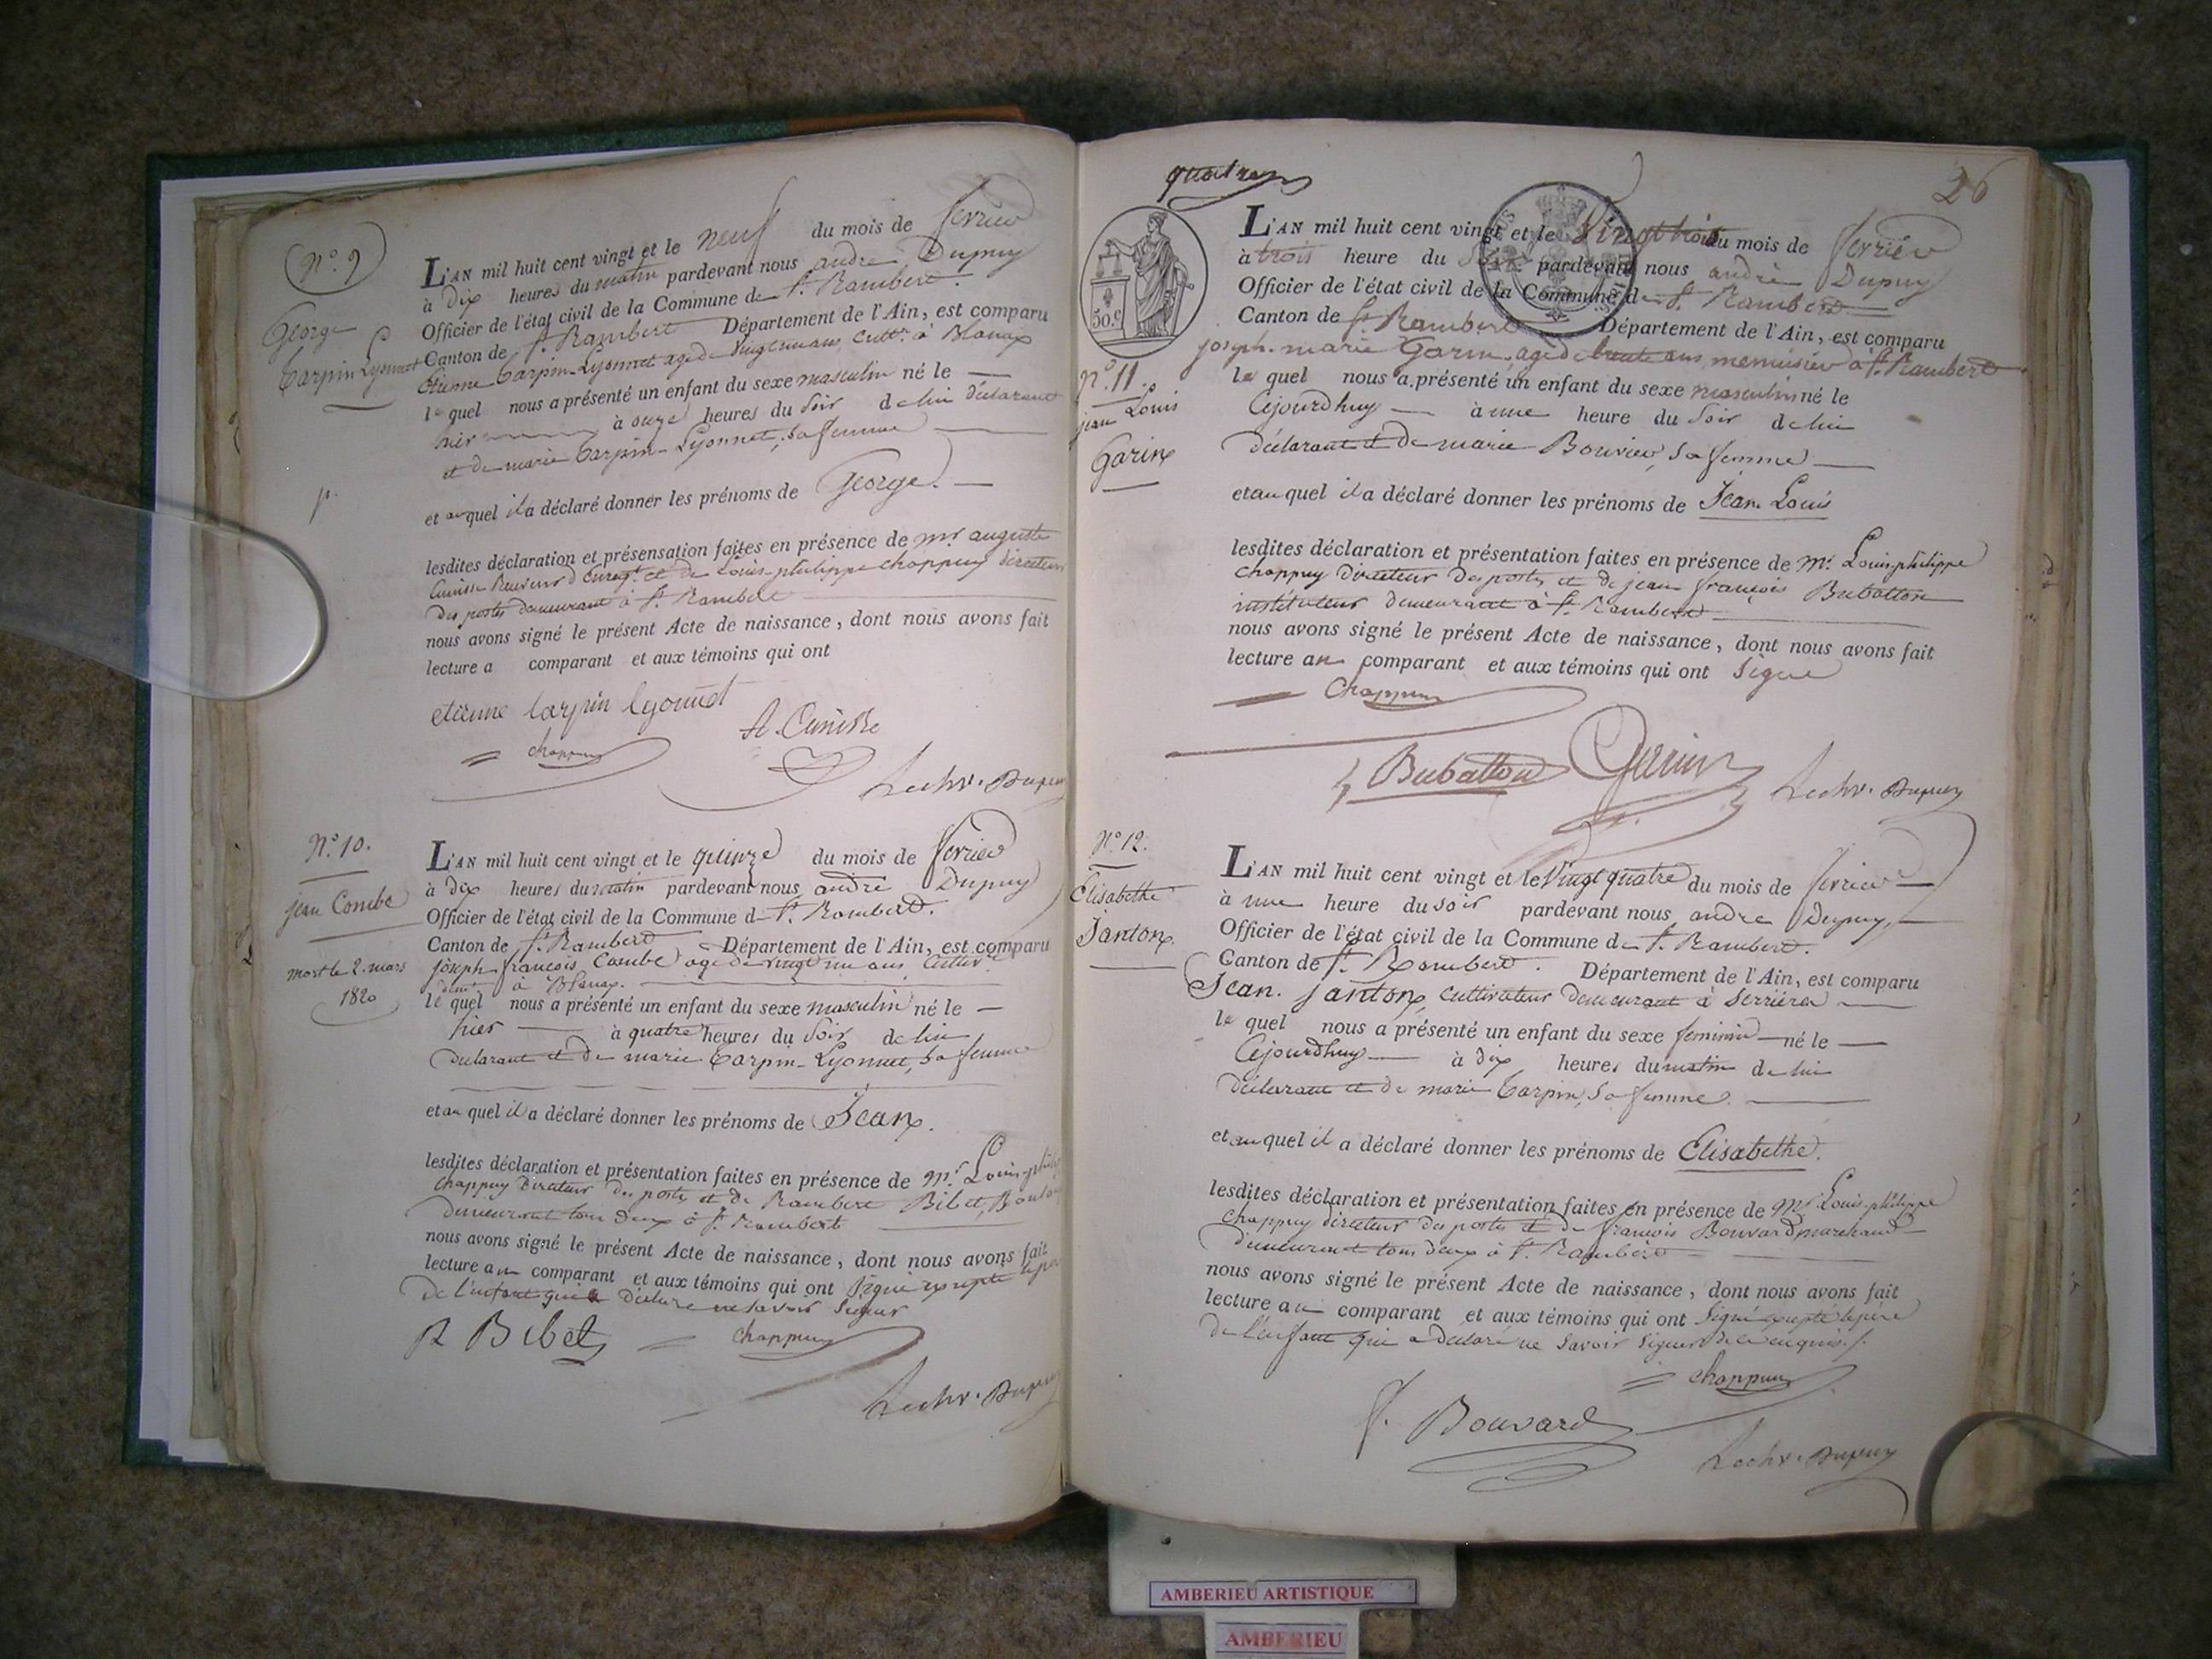 N.º 9
George
Carpin Lyonnet
L'AN mil huit cent vingt et le neuf du mois de fevrier
à dix heures du matin pardevant nous andré Dupuy
Officier de l'état civil de la Commune de St. Rambert.
Canton de St. Rambert Département de l'Ain, est comparu
Etienne Carpin-Lyonnet agé de vingt un ans, cultr. à Blanax
lequel nous a présenté un enfant du sexe masculin né le
hier à onze heures du soir de lui déclarant
et de marie Carpin-Lyonnet, sa femme
et auquel il a déclaré donner les prénoms de George.
lesdites déclaration et présensation faites en présence de mr auguste
Cunisse Receveur d'Enregt. et de Louis-philippe chappuy directeur
des postes demeurant à St. Rambert
nous avons signé le présent Acte de naissance, dont nous avons fait
lecture a comparant et aux témoins qui ont
etienne carpin lyonnet
A. Cunisse
chappuy
Dupuy
N.º 10.
jean Combe
mort le 2. mars
1820
L'AN mil huit cent vingt et le quinze du mois de fevrier
à dix heures du matin pardevant nous andré Dupuy
Officier de l'état civil de la Commune de St. Rambert.
Canton de St. Rambert Département de l'Ain, est comparu
joseph françois Combe agé de vingt un ans, cultivr.
demt. à Blanax.
lequel nous a présenté un enfant du sexe masculin né le
hier à quatre heures du soir de lui
déclarant et de marie Carpin-Lyonnet, sa femme
et au quel il a déclaré donner les prénoms de Jean.
lesdites déclaration et présentation faites en présence de Mr. Louis-philippe
chappuy Directeur des postes et de Rambert Bibet,
demeurant tous deux à St. Rambert
nous avons signé le présent Acte de naissance, dont nous avons fait
lecture au comparant et aux témoins qui ont signé excepté le père
de l'enfant qui a déclaré ne savoir signer
R Bibet
chappuy
Dupuy
quatre
26
50.c
N.º 11.
jean Louis
Garin
L'AN mil huit cent vingt et le Vingt trois du mois de fevrier
à trois heure du soir pardevant nous andré Dupuy
Officier de l'état civil de la Commune de St. Rambert
Canton de St. Rambert Département de l'Ain, est comparu
joseph-marie Garin, agé de trente ans, menuisier à St. Rambert
lequel nous a présenté un enfant du sexe masculin né le
Cejourdhuy à une heure du soir de lui
déclarant et de marie Bouvier, sa femme
et au quel il a déclaré donner les prénoms de Jean Louis
lesdites déclaration et présentation faites en présence de Mr. Louis philippe
chappuy directeur des postes et de jean françois Bubatton
instituteur demeurant à St. Rambert
nous avons signé le présent Acte de naissance, dont nous avons fait
lecture au comparant et aux témoins qui ont signé
Chappuy
Bubatton Garin
Dupuy
N.º 12.
Elisabethe
Janton
L'AN mil huit cent vingt et le Vingt quatre du mois de fevrier
à une heure du soir pardevant nous andré Dupuy,
Officier de l'état civil de la Commune de St. Rambert.
Canton de St. Rambert. Département de l'Ain, est comparu
Jean. Janton, cultivateur demeurant à Serrières
lequel nous a présenté un enfant du sexe feminin né le
Cejourdhuy à dix heures du matin de lui
déclarant et de marie Carpin, sa femme.
et au quel il a déclaré donner les prénoms de Elisabethe.
lesdites déclaration et présentation faites en présence de Mr Louis-philippe
chappuy directeur des postes et de françois Bouvard marchand
demeurant tous deux à St. Rambert
nous avons signé le présent Acte de naissance, dont nous avons fait
lecture au comparant et aux témoins qui ont signé excepté le père
de l'enfant qui a déclaré ne savoir signer de ce enquis.
chappuy
f. Bouvard
Dupuy
AMBERIEU ARTISTIQUE
AMBERIEU